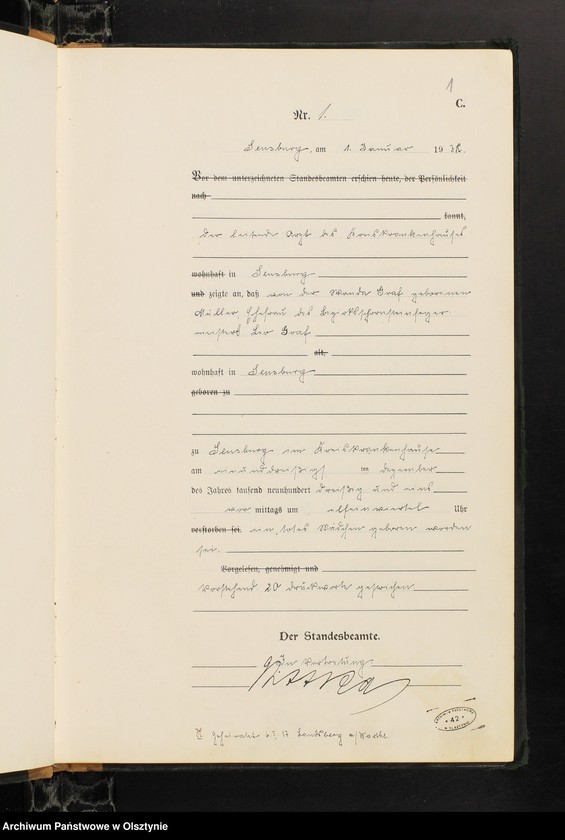 1
C.
Nr. 1.
Sensburg, am 1. Januar 1932.
Vor dem unterzeichneten Standesbeamten erschien heute, der Persönlichkeit
nach
kannt,
der leitende Arzt des Kreiskrankenhauses
wohnhaft in Sensburg
und zeigte an, daß von der Wanda Graf geborenen
Müller, Ehefrau des Bezirksschornsteinfeger-
meisters Leo Graf
alt,
wohnhaft in Sensburg
geboren zu
zu Sensburg im Kreiskrankenhause
am einunddreißigsten Dezember
des Jahres tausend neunhundert dreißig und eins
vor mittags um elfeinviertel Uhr
verstorben sei. ein totes Mädchen geboren worden
sei.
Vorgelesen, genehmigt und
Vorstehend 20 Druckworte gestrichen.
Der Standesbeamte.
In Vertretung
Landsberg a/Warthe
ARCHIWUM PAŃSTWOWE
42
W OLSZTYNIE
Archiwum Państwowe w Olsztynie